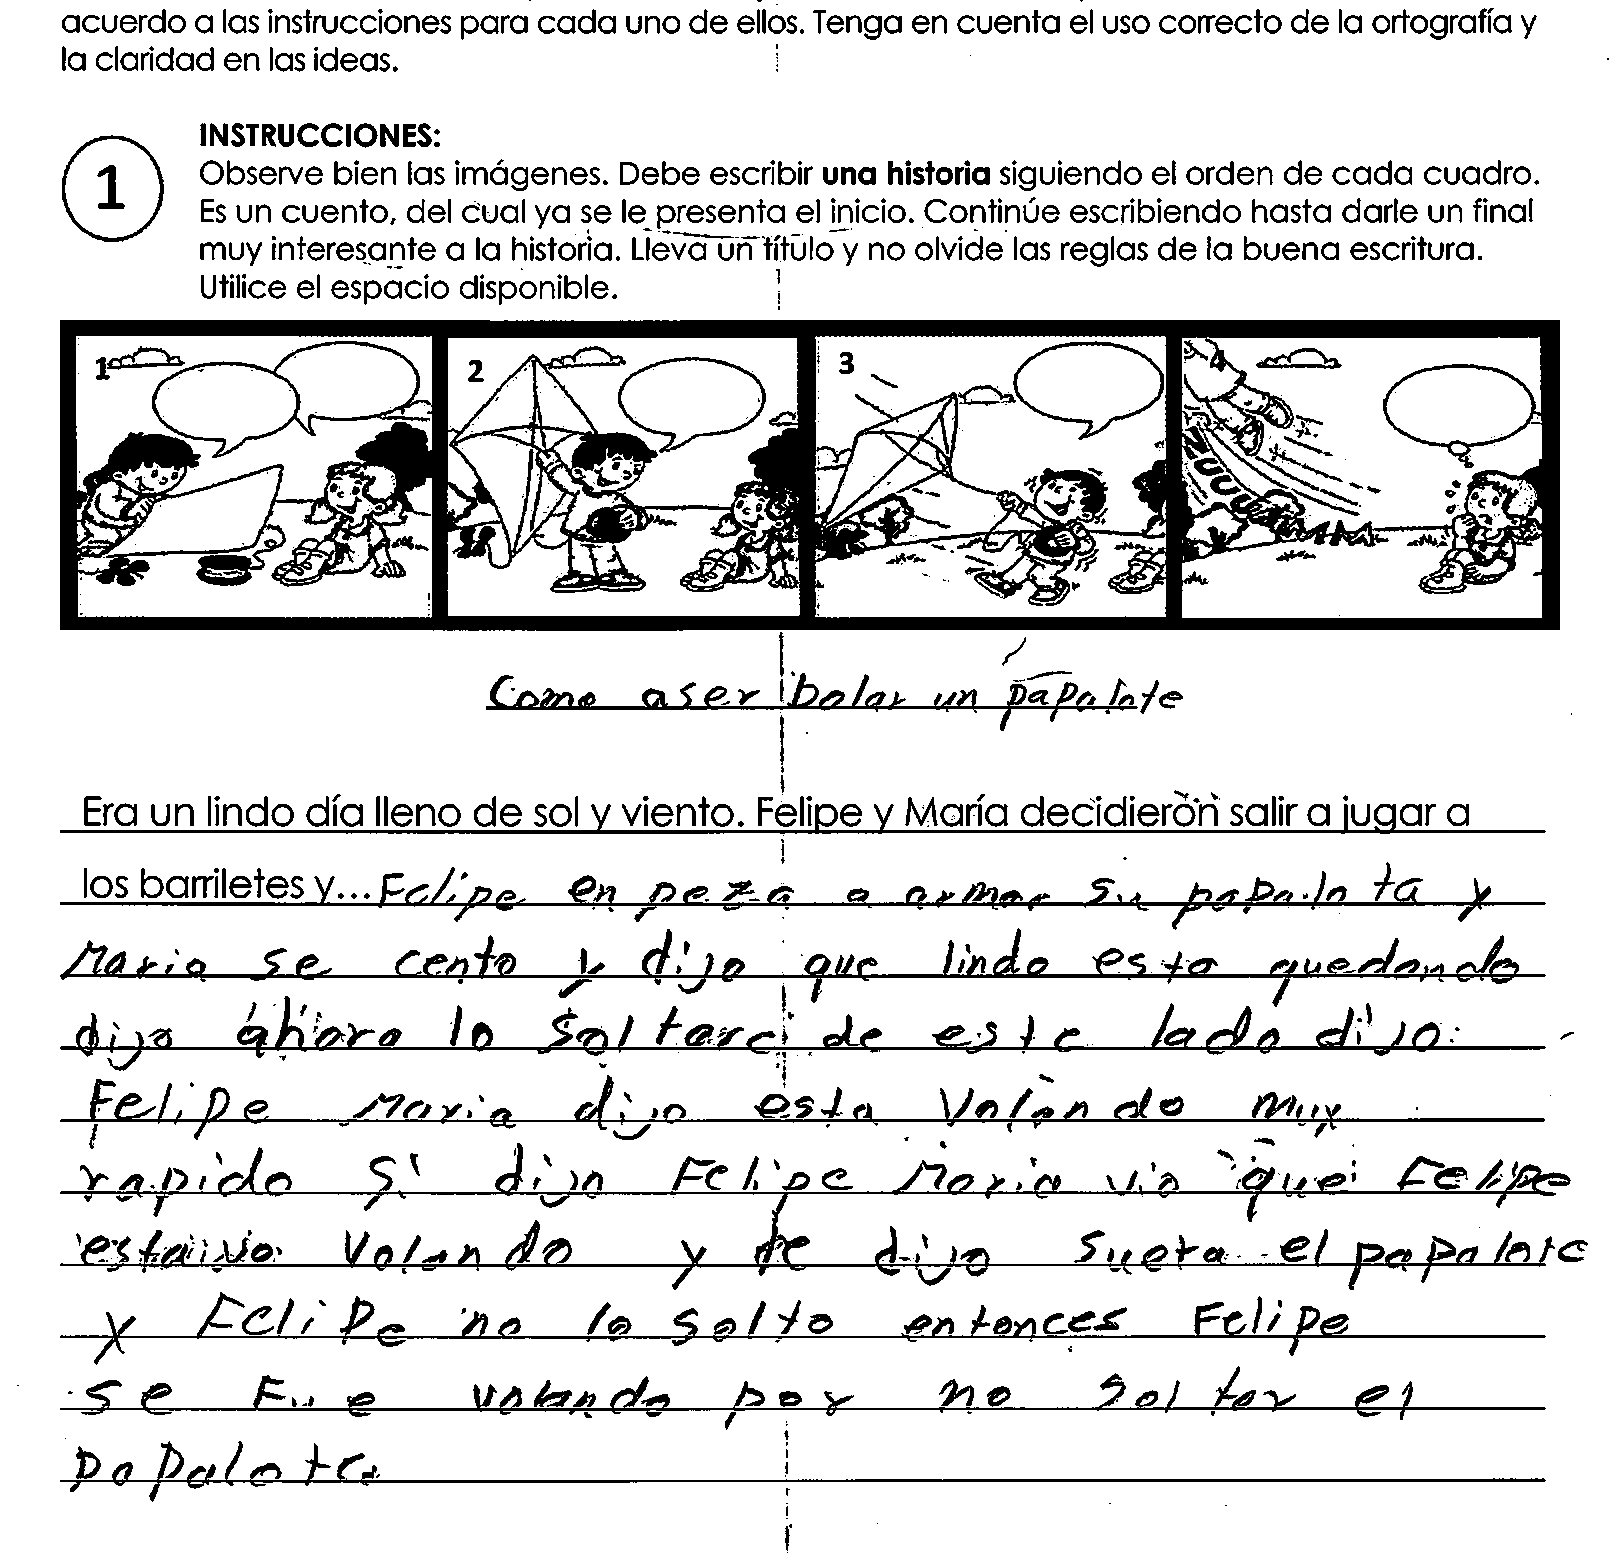 acuerdo a las instrucciones para cada uno de ellos. Tenga en cuenta el uso correcto de la ortografía y
la claridad en las ideas.
1
INSTRUCCIONES:
Observe bien las imágenes. Debe escribir una historia siguiendo el orden de cada cuadro.
Es un cuento, del cual ya se le presenta el inicio. Continúe escribiendo hasta darle un final
muy interesante a la historia. Lleva un título y no olvide las reglas de la buena escritura.
Utilice el espacio disponible.
1 2 3 4
Como aser bolar un papalote
Era un lindo día lleno de sol y viento. Felipe y María decidieron salir a jugar a
los barriletes y... Felipe en peza a armar su papalota y
Maria se cento y dijo que lindo esta quedando
dijo ahora lo soltare de este lado dijo:
Felipe Maria dijo esta volando muy
rapido si dijo Felipe Maria vio que Felipe
estava volando y le dijo sueta el papalote
y Felipe no lo solto entonces Felipe
se Fue volando por no soltar el
papalote